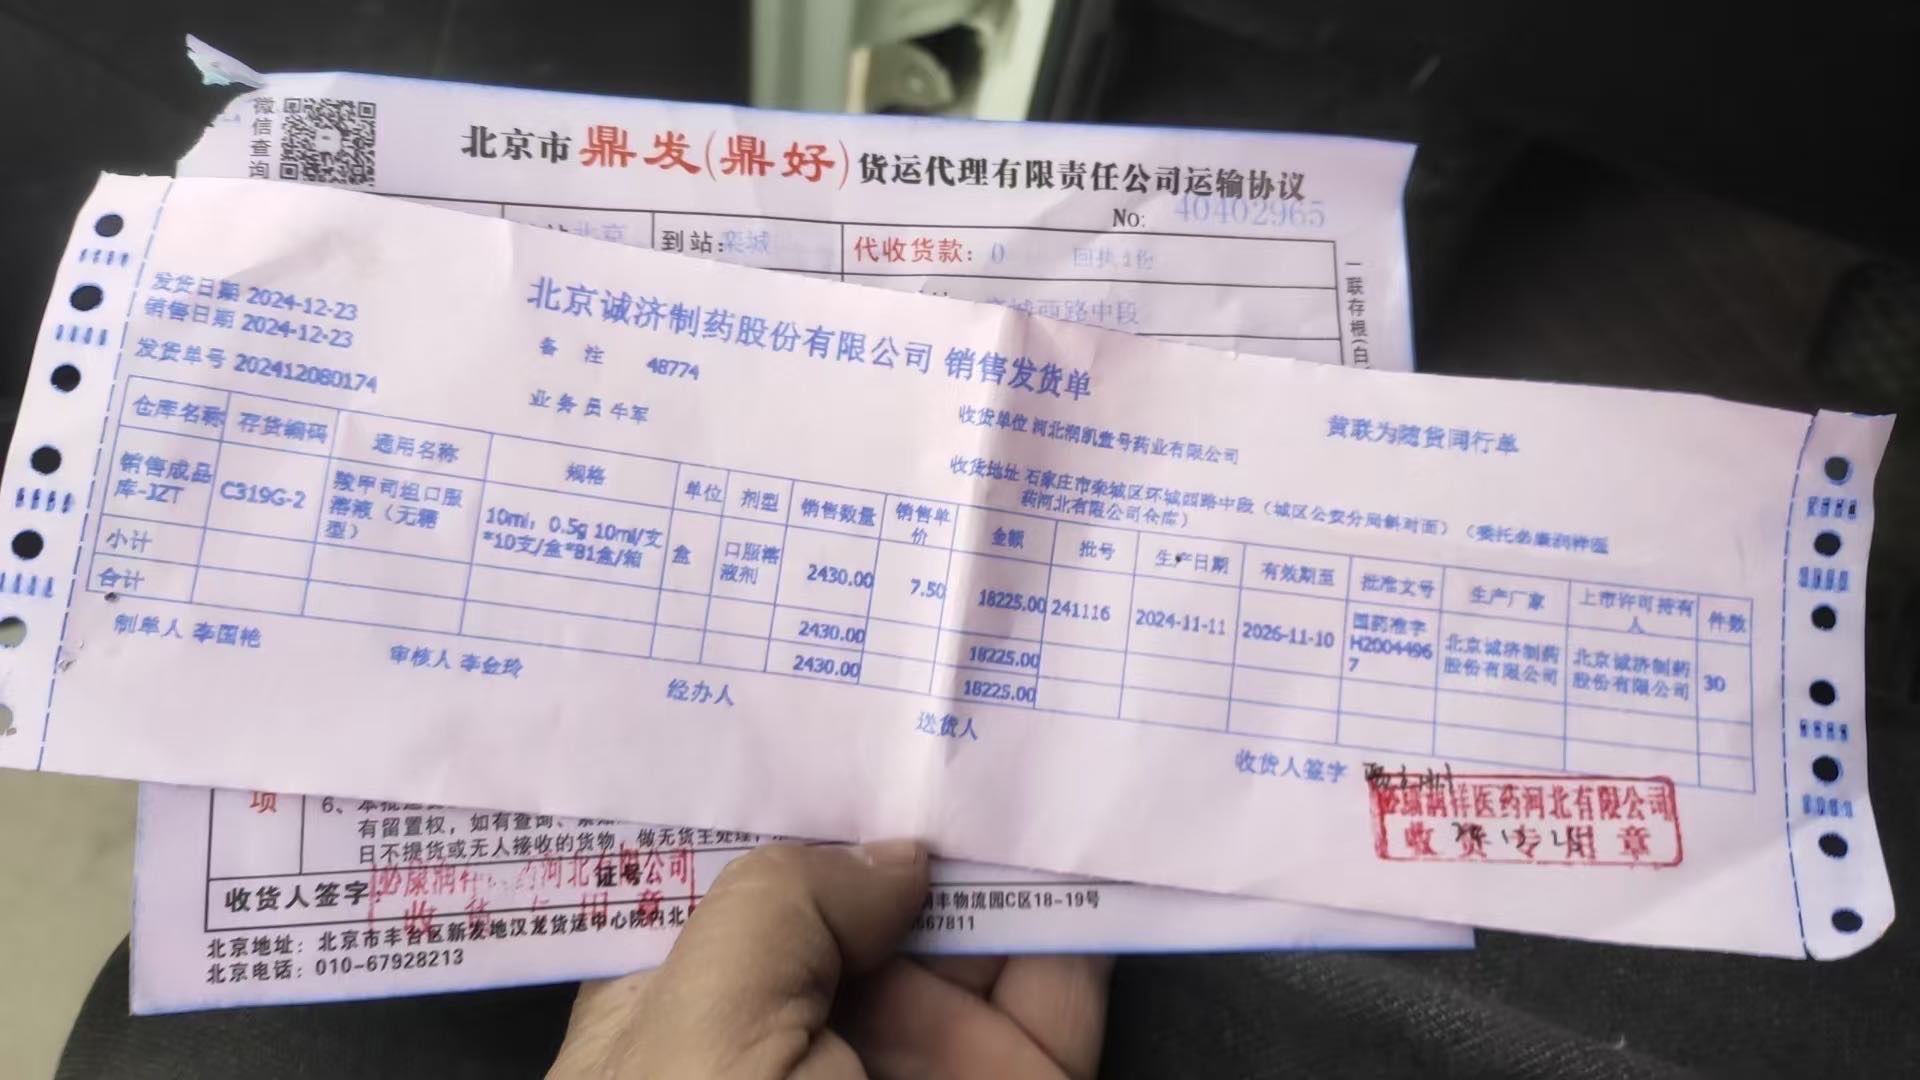 微信查询
北京市鼎发(鼎好)货运代理有限责任公司运输协议
No: 40402965
北京
到站:栾城
代收货款: 0
回执1份
城西路中段
一联存根(白
发货日期 2024-12-23
销售日期 2024-12-23
发货单号 202412080174
北京诚济制药股份有限公司 销售发货单
备 注 48774
业务员 牛军
收货单位 河北润凯壹号药业有限公司
黄联为随货同行单
收货地址 石家庄市栾城区环城西路中段(城区公安分局斜对面)(委托必康润祥医
药河北有限公司仓库)
仓库名称 存货编码 通用名称 规格 单位 剂型 销售数量 销售单价 金额 批号 生产日期 有效期至 批准文号 生产厂家 上市许可持有人 件数
销售成品库-JZT C319G-2 羧甲司坦口服溶液(无糖型) 10ml: 0.5g 10ml/支*10支/盒*81盒/箱 盒 口服溶液剂 2430.00 7.50 18225.00 241116 2024-11-11 2026-11-10 国药准字H20044967 北京诚济制药股份有限公司 北京诚济制药股份有限公司 30
小计 2430.00 18225.00
合计 2430.00 18225.00
制单人 李国艳
审核人 李金玲
经办人
送货人
收货人签字
必康润祥医药河北有限公司
收货专用章
项
6、
有留置权,如有查询、
日不提货或无人接收的货物,做无货主处理,
收货人签字:
证号
必康润祥医药河北有限公司
收货专用章
丰物流园C区18-19号
67811
北京地址: 北京市丰台区新发地汉龙货运中心院内北
北京电话: 010-67928213